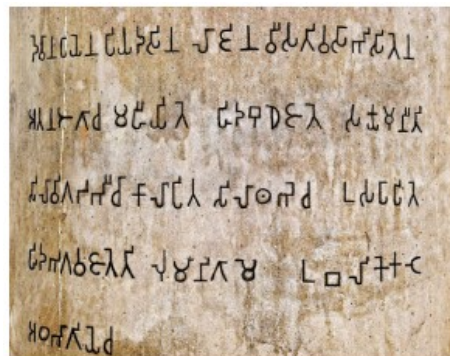 𑀤𑁂𑀯𑀸𑀦𑀧𑀺𑀬𑁂𑀦 𑀧𑀺𑀬𑀤𑀲𑀺𑀦 𑀮𑀸𑀚𑀺𑀦 𑀯𑀻𑀲𑀢𑀺𑀯𑀲𑀸𑀪𑀺𑀲𑀺𑀢𑁂𑀦
𑀅𑀢𑀦𑀆𑀕𑀸𑀘 𑀫𑀳𑀻𑀬𑀺𑀢𑁂 𑀳𑀺𑀤𑀩𑀼𑀥𑁂𑀚𑀸𑀢 𑀲𑀓𑁆𑀬𑀫𑀼𑀦𑀻𑀢𑀺
𑀲𑀺𑀮𑀸𑀯𑀺𑀕𑀥𑀪𑀺𑀘𑀸 𑀓𑀸𑀮𑀸𑀧𑀺𑀢 𑀲𑀺𑀮𑀸𑀣𑀪𑁂𑀘 𑀉𑀲𑀧𑀸𑀧𑀺𑀢𑁂
𑀳𑀺𑀤𑀪𑀕𑀯𑀁𑀚𑀸𑀢𑁂𑀢𑀺 𑀮𑀼𑀁𑀫𑀺𑀦𑀺𑀕𑀸𑀫𑁂 𑀉𑀩𑀮𑀺𑀓𑁂𑀓𑀝𑁂
𑀅𑀞𑀪𑀸𑀕𑀺𑀬𑁂𑀘